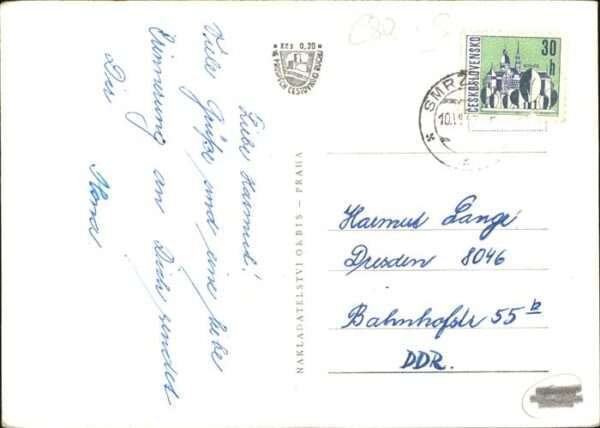 Liebe Harmut!
Viele Grüße und eine liebe
Erinnerung an Dich sendet
Die
Mona
Kčs 0,30
NAKLADATELSTVÍ ORBIS – PRAHA
ČESKOSLOVENSKO
30
h
SMRŽ
10.
Harmut Lange
Dresden 8046
Bahnhofstr 55 b
DDR.